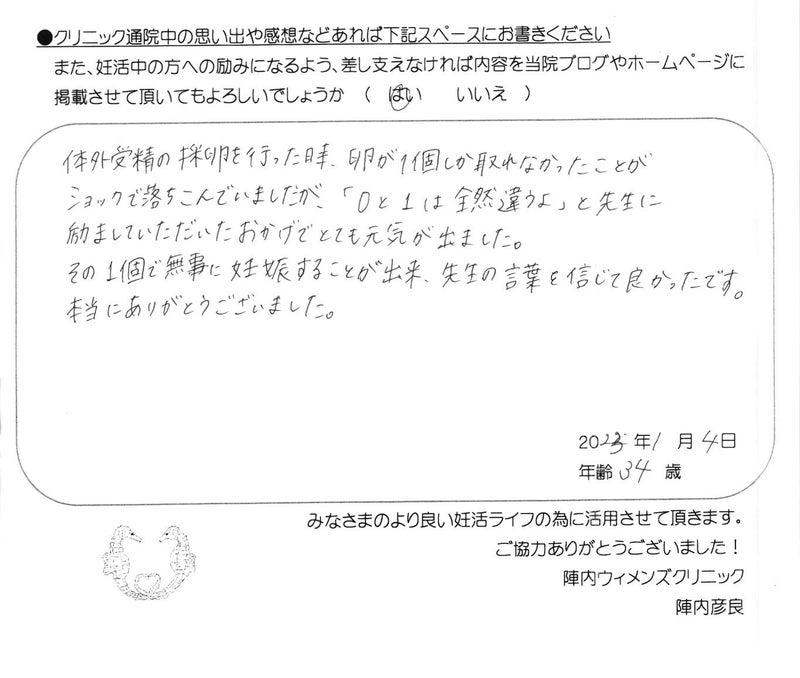 ●クリニック通院中の思い出や感想などあれば下記スペースにお書きください
また、妊活中の方への励みになるよう、差し支えなければ内容を当院ブログやホームページに
掲載させて頂いてもよろしいでしょうか （ はい いいえ ）
体外受精の採卵を行った時、卵が1個しか取れなかったことが
ショックで落ちこんでいましたが、「0と1は全然違うよ」と先生に
励ましていただいたおかげでとても元気が出ました。
その1個で無事に妊娠することが出来、先生の言葉を信じて良かったです。
本当にありがとうございました。
2023年1月4日
年齢34歳
みなさまのより良い妊活ライフの為に活用させて頂きます。
ご協力ありがとうございました！
陣内ウィメンズクリニック
陣内彦良